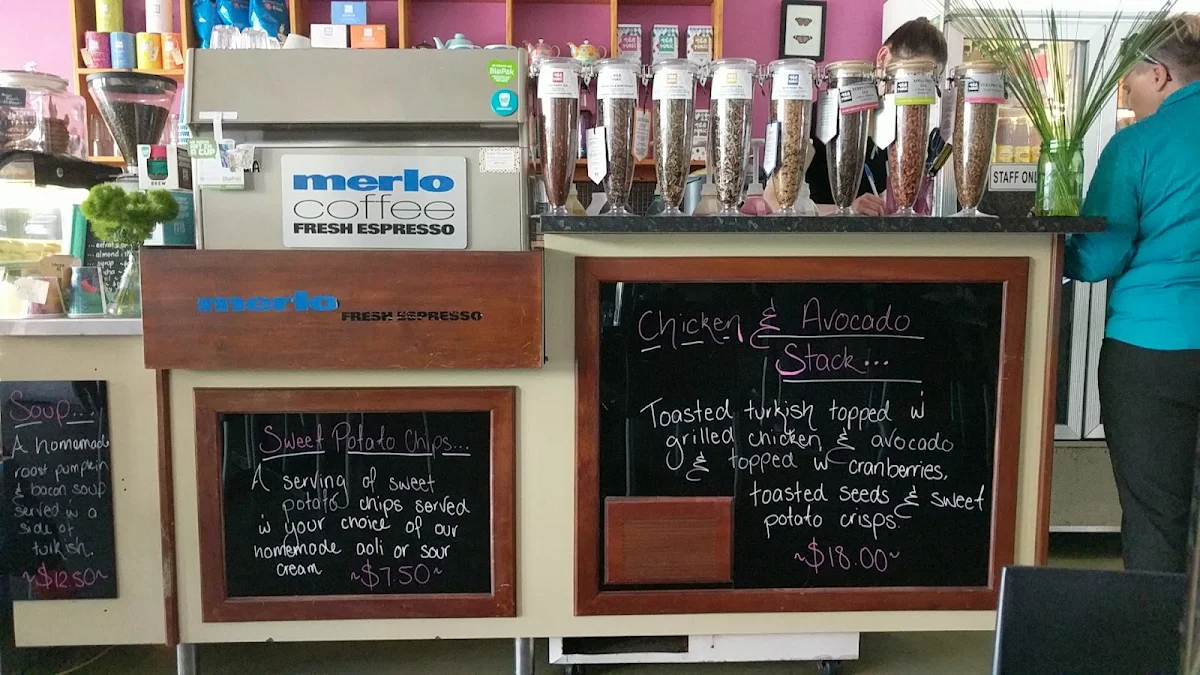 BioPak
merlo
coffee
FRESH ESPRESSO
merlo FRESH ESPRESSO
STAFF ONL
BREW
Soup...
A homemade
roast pumpkin
& bacon soup
served w a
side of
turkish.
~$12.50~
Sweet Potato Chips...
A serving of sweet
potato chips served
w your choice of our
homemade aoli or sour
cream ~$7.50~
Chicken & Avocado
Stack...
Toasted turkish topped w
grilled chicken & avocado
& topped w cranberries,
toasted seeds & sweet
potato crisps.
~$18.00~